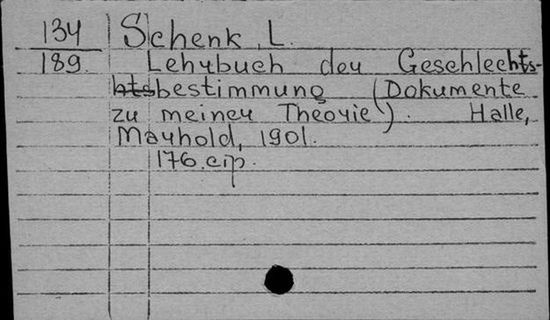 134 Schenk, L.
189. Lehrbuch der Geschlechts-
bestimmung (Dokumente
zu meiner Theorie). Halle,
Marhold, 1901.
176 стр.